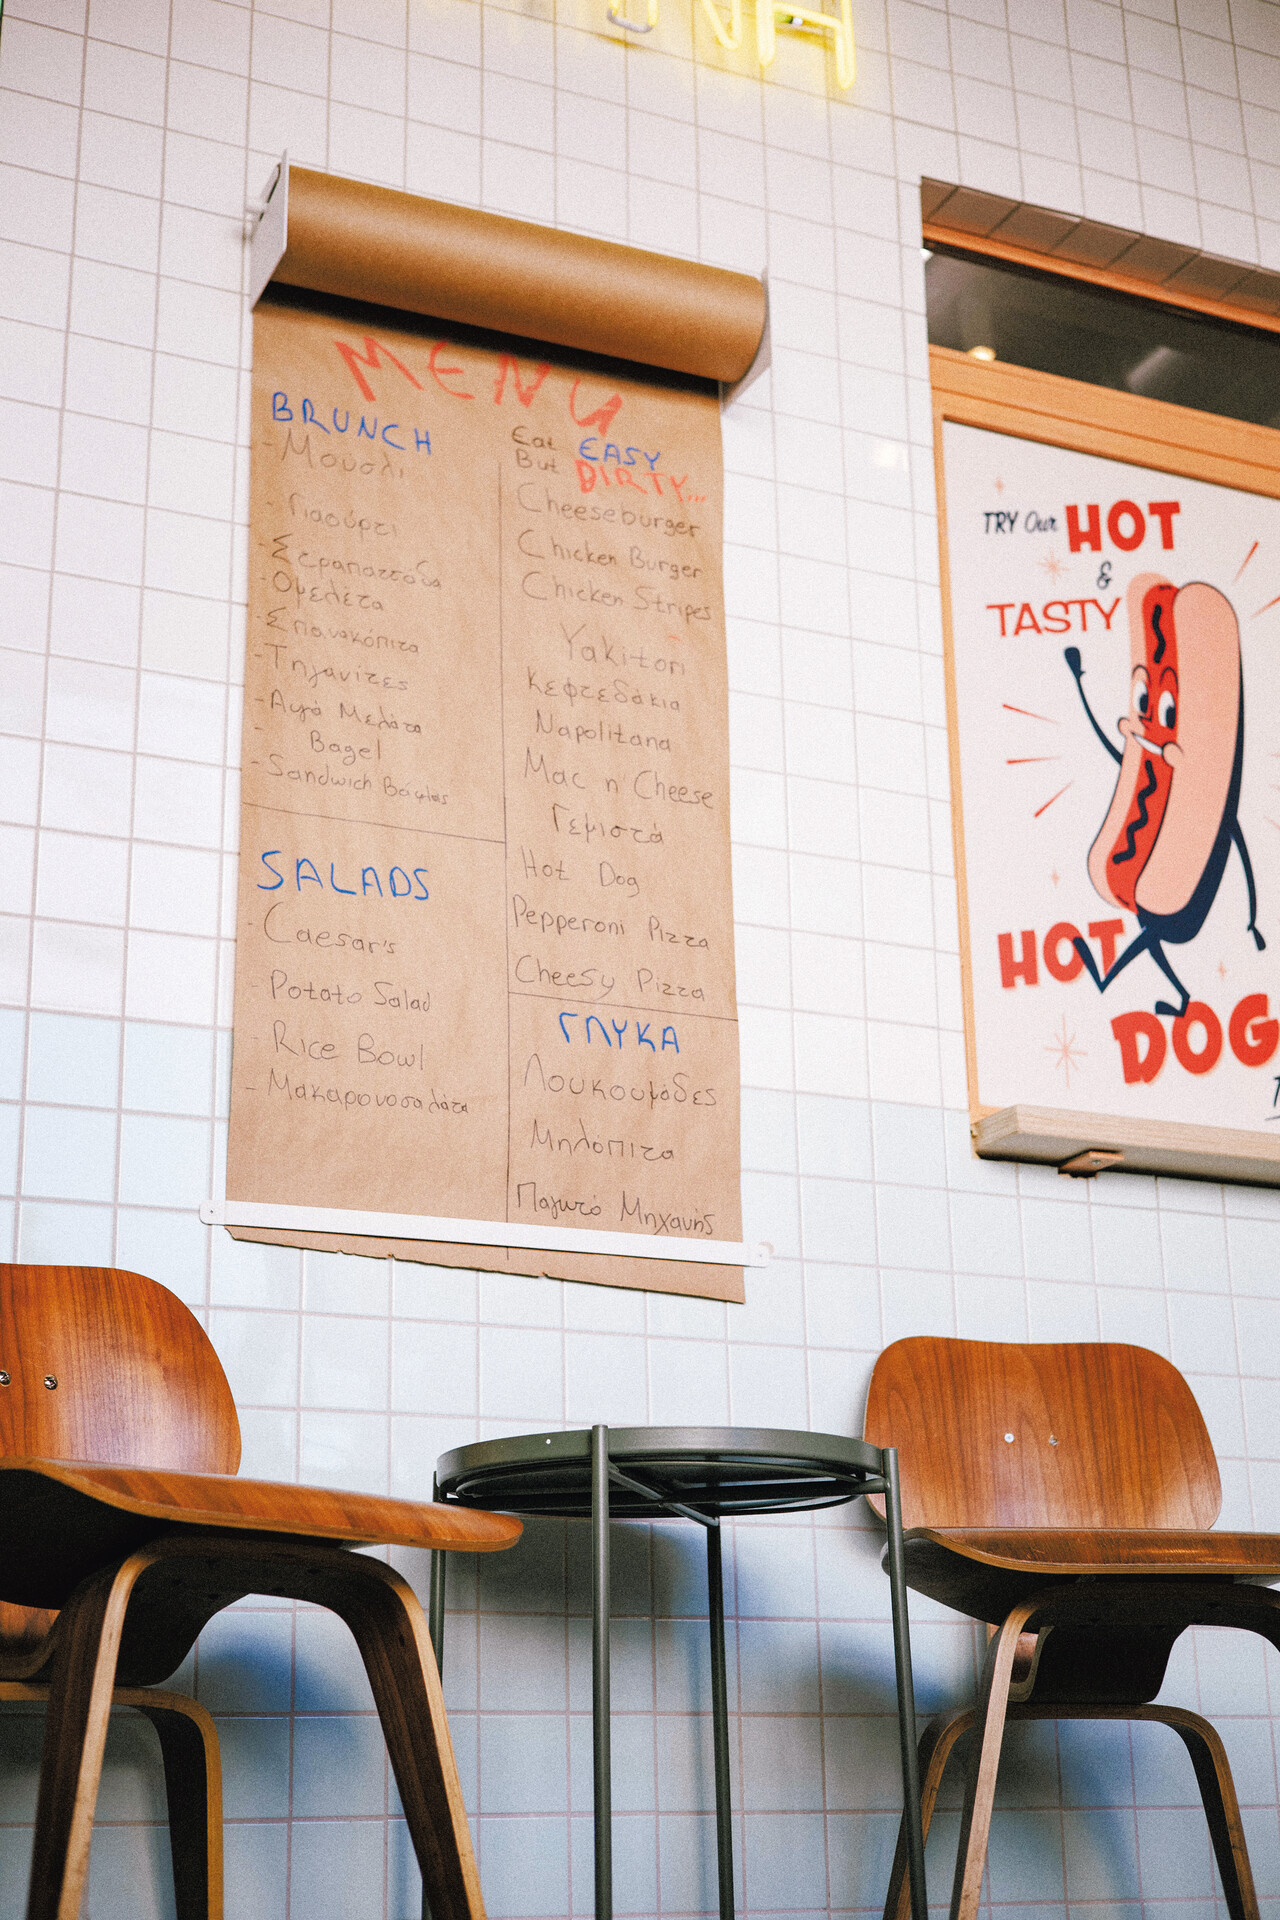 MENU
BRUNCH
- Μουσλι
- Γιαούρτι
- Στραπατσάδα
- Ομελέτα
- Σπανακόπιτα
- Τηγανίτες
- Αυγά Μελάτα
- Bagel
- Sandwich Βάφλας
SALADS
- Caesar's
- Potato Salad
- Rice Bowl
- Μακαρονοσαλάτα
Eat EASY
But DIRTY...
Cheeseburger
Chicken Burger
Chicken Stripes
Yakitori
Κεφτεδάκια
Napolitana
Mac n' Cheese
Γεμιστά
Hot Dog
Pepperoni Pizza
Cheesy Pizza
ΓΛΥΚΑ
Λουκουμάδες
Μηλοπιτα
Παγωτό Μηχανής
TRY Our HOT
&
TASTY
HOT
DOG